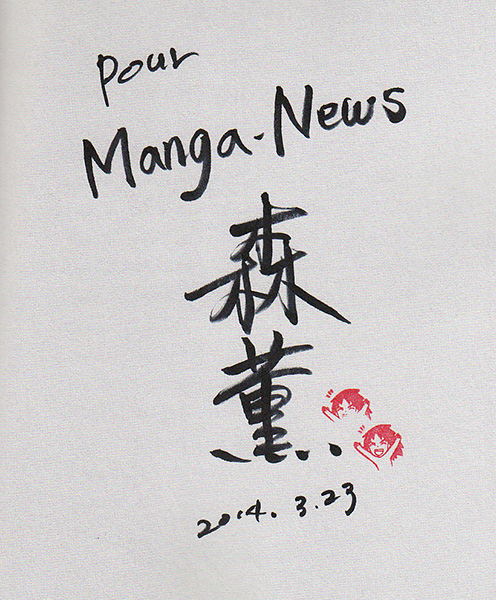 pour
Manga-News
森
薫
2014. 3.23